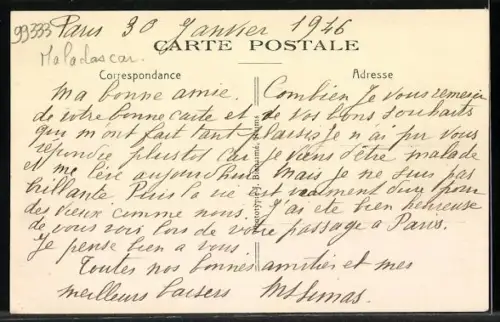 99333
Paris 30 Janvier 1946
CARTE POSTALE
Maladascar.
Correspondance
Adresse
Ma bonne amie. Combien Je vous remercie
de votre bonne carte et de vos bons souhaits
qui m'ont fait tant plaisir Je n'ai pu vous
repondre plustot car je viens d'être malade
et me leve aujourd'hui Mais je ne suis pas
brillante Puis la vie est vraiment dure pour
des vieux comme nous. J'ai ete bien heureuse
de vous voir lors de votre passage a Paris.
Je pense bien a vous.
Toutes nos bonnes amities et mes
meilleurs baisers
Phototypie